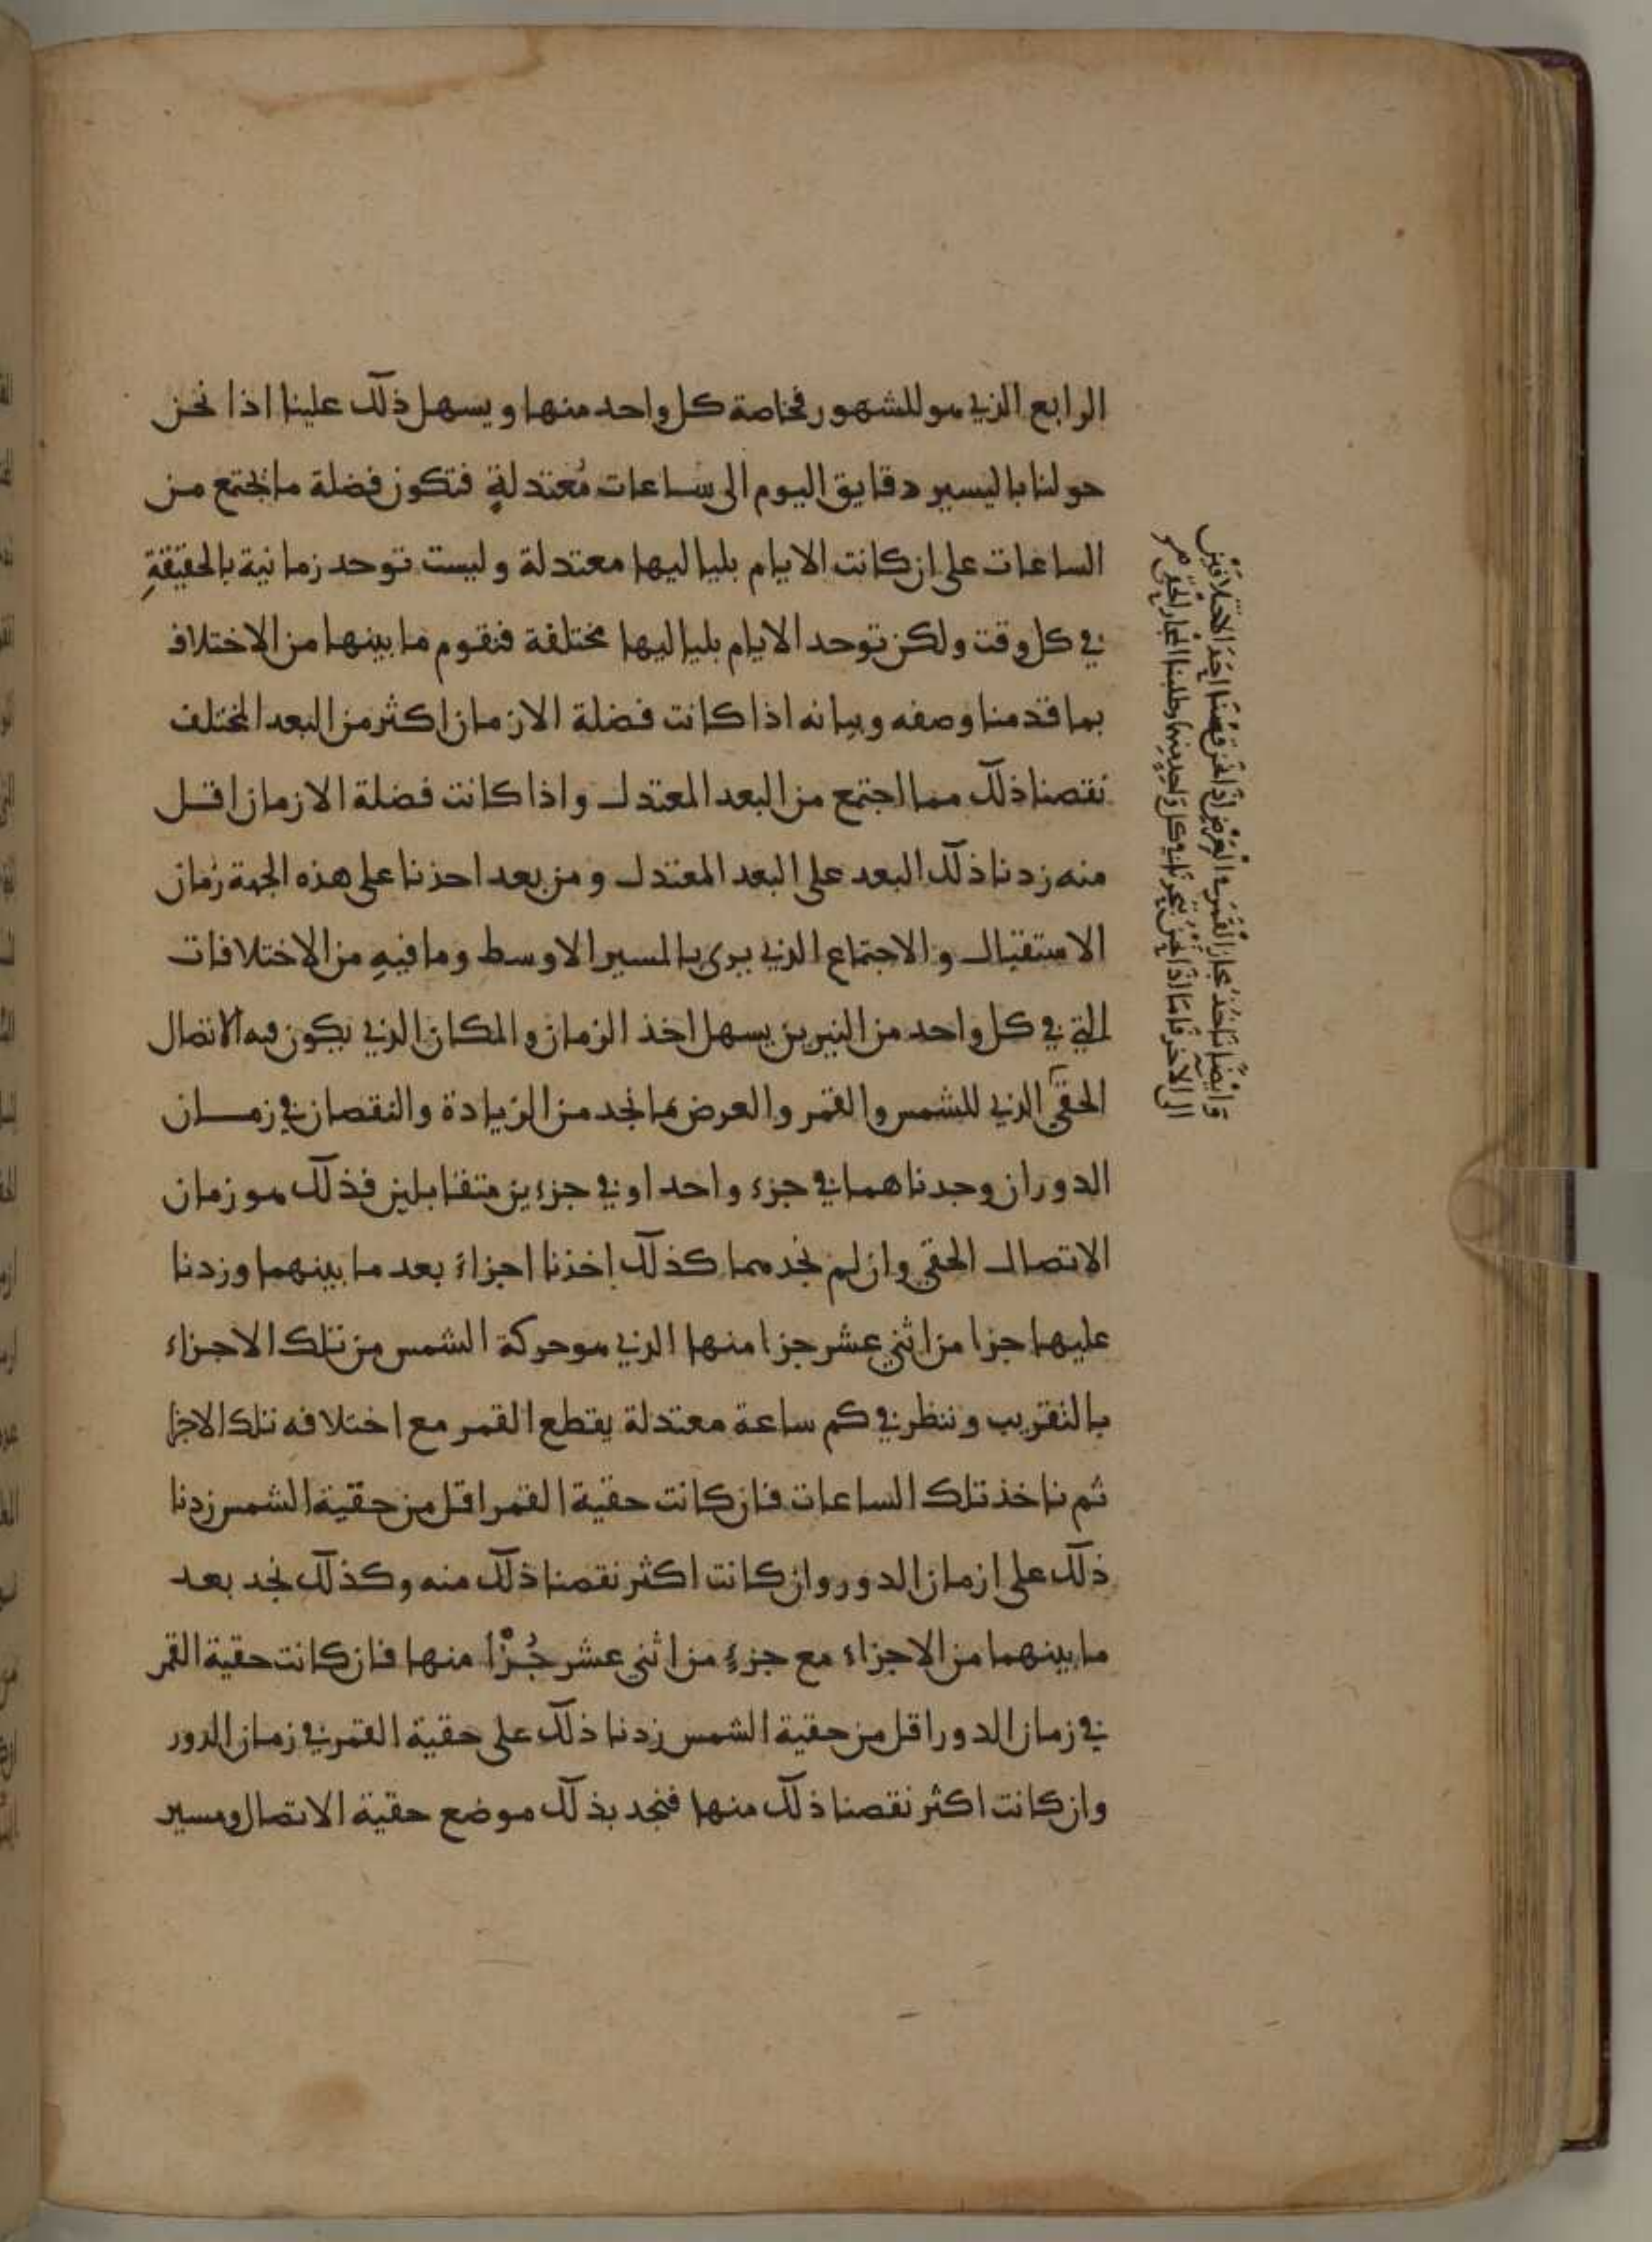 الرابع الذي هو للشهور فخاصة كل واحد منها ويسهل ذلك علينا اذا نحن
حولنا باليسير دقايق اليوم الى ساعات مُعتدلةٍ فتكون فضلة ما يجتمع من
الساعات على ان كانت الايام بلياليها معتدلة وليست توحد زمانية بالحقيقةِ
في كل وقت ولكن توحد الايام بلياليها مختلفة فنقوم ما بينهما من الاختلاف
بما قدمنا وصفه وبيانه اذا كانت فضلة الازمان اكثر من البعد المختلف
نقصنا ذلك مما اجتمع من البعد المعتدل واذا كانت فضلة الازمان اقل
منه زدنا ذلك البعد على البعد المعتدل ومن بعد احذنا على هذه الجهة زمان
الاستقبال والاجتماع الذي يرى بالمسير الاوسط وما فيهِ من الاختلافات
التي في كل واحد من النيرين يسهل اخذ الزمان والمكان الذي يكون فيه الاتصال
الحقي الذي للشمس والقمر والعرض فما نجد من الزيادة والنقصان في زمان
الدور ان وجدناهما في جزء واحد او في جزءين متقابلين فذلك هو زمان
الاتصال الحقي وان لم نجدهما كذلك اخذنا اجزاء بعد ما بينهما وزدنا
عليها جزا من اثني عشر جزا منها الذي هو حركة الشمس من تلك الاجزاء
بالتقريب وننظر في كم ساعة معتدلة يقطع القمر مع اختلافه تلك الاجزا
ثم ناخذ تلك الساعات فان كانت حقية القمر اقل من حقية الشمس زدنا
ذلك على ازمان الدور وان كانت اكثر نقصنا ذلك منه وكذلك نجد بعد
ما بينهما من الاجزاء مع جزءٍ من اثني عشر جُزْأ منها فان كانت حقية القمر
في زمان الدور اقل من حقية الشمس زدنا ذلك على حقية القمر في زمان الدور
وان كانت اكثر نقصنا ذلك منها فنجد بذلك موضع حقية الاتصال ومسير
وَايضًا نَاخذ مجاز القمَر في العَرض اذا نحن قسنا احَدَ الاختلافين
الى الآخر فامّا اذا نحن في كل وَاحدٍ منهما وطلبنا المجاز الحقي هو